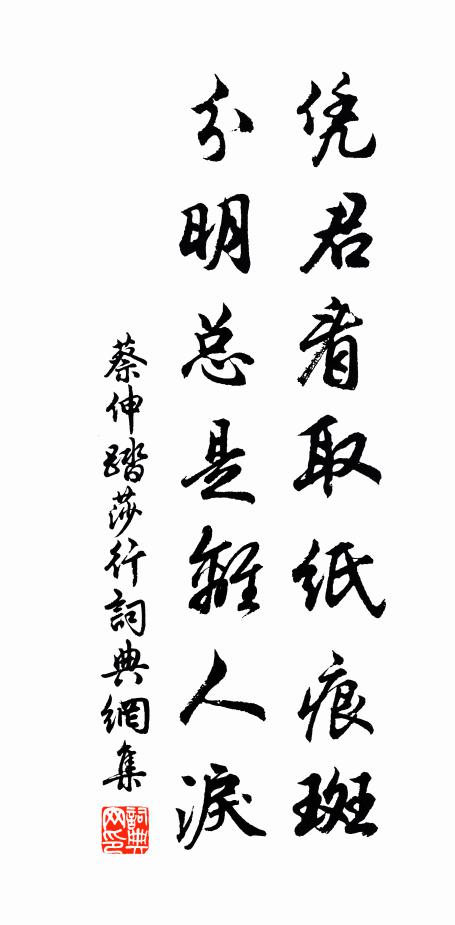 凭君看取纸痕斑
分明总是離人淚
蔡伸踏莎行詞典網集
詞典网印